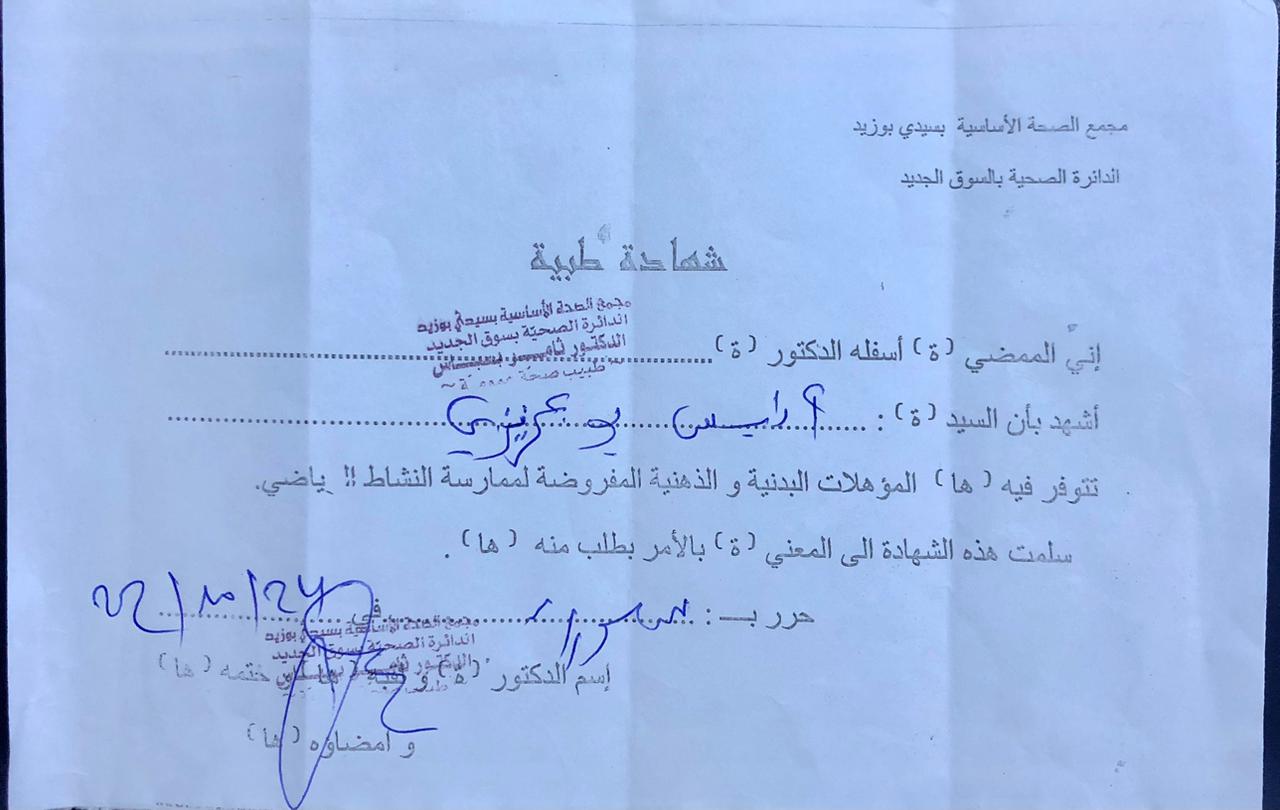 مجمع الصحة الأساسية بسيدي بوزيد
الدائرة الصحية بالسوق الجديد
شهادة طبية
مجمع الصحة الأساسية بسيدي بوزيد
الدائرة الصحيّة بسوق الجديد
الدكتور ثامر بعباس
طبيب صحة
إني الممضي (ة) أسفله الدكتور (ة)
أشهد بأن السيد (ة) : بوعزيزي
تتوفر فيه (ها) المؤهلات البدنية و الذهنية المفروضة لممارسة النشاط الرياضي.
سلمت هذه الشهادة الى المعني (ة) بالأمر بطلب منه (ها) .
حرر بـ : في 22/10/24
مجمع الصحة الأساسية بسيدي بوزيد
الدائرة الصحيّة بسوق الجديد
الدكتور ثامر بعباس
طبيب
إسم الدكتور (ة) و لقبه (ها) و ختمه (ها)
و امضاؤه (ها)